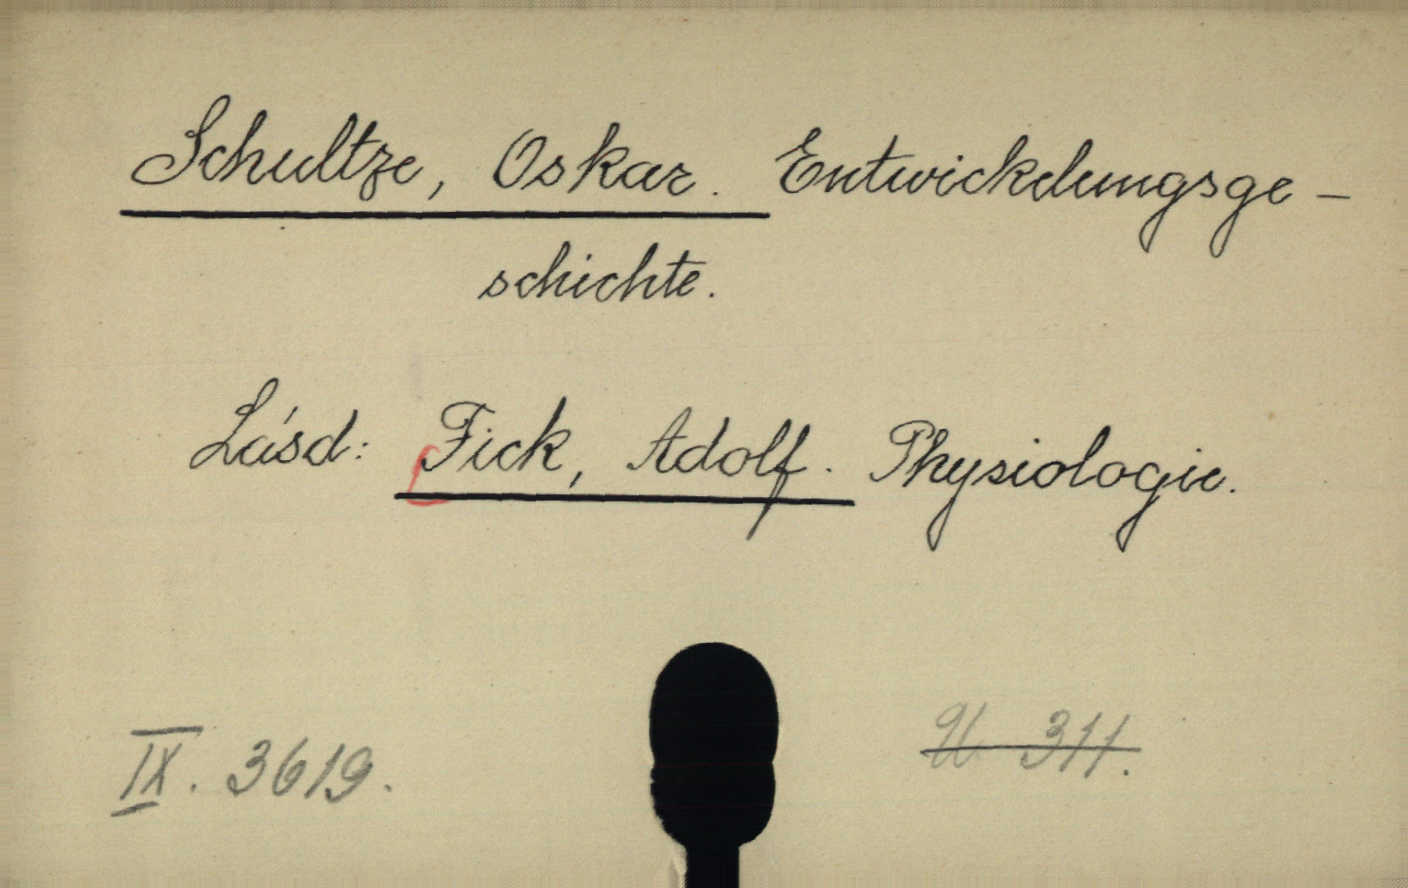 Schultze, Oskar. Entwickelungsge-
schichte.
Lásd: Fick, Adolf. Physiologie.
IX. 3619.
311.